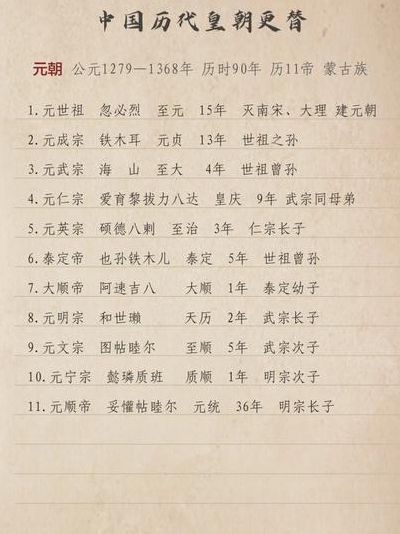 中国历代皇朝更替
元朝 公元1279—1368年 历时90年 历11帝 蒙古族
1.元世祖 忽必烈 至元 15年 灭南宋、大理 建元朝
2.元成宗 铁木耳 元贞 13年 世祖之孙
3.元武宗 海山 至大 4年 世祖曾孙
4.元仁宗 爱育黎拔力八达 皇庆 9年 武宗同母弟
5.元英宗 硕德八剌 至治 3年 仁宗长子
6.泰定帝 也孙铁木儿 泰定 5年 世祖曾孙
7.大顺帝 阿速吉八 大顺 1年 泰定幼子
8.元明宗 和世㻋 天历 2年 武宗长子
9.元文宗 图帖睦尔 至顺 5年 武宗次子
10.元宁宗 懿璘质班 质顺 1年 明宗次子
11.元顺帝 妥懽帖睦尔 元统 36年 明宗长子